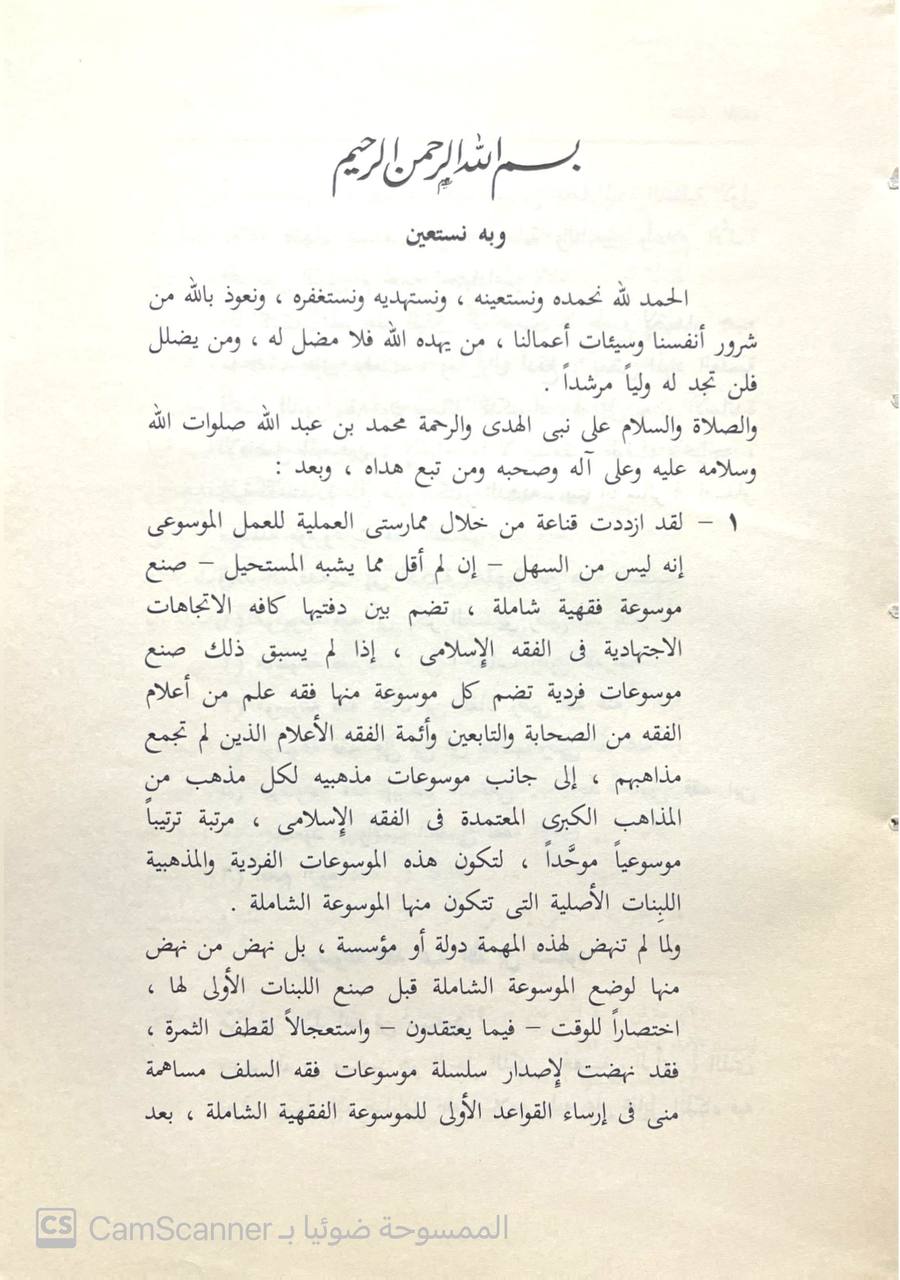 بسم الله الرحمن الرحيم
وبه نستعين
الحمد لله نحمده ونستعينه ، ونستهديه ونستغفره ، ونعوذ بالله من
شرور أنفسنا وسيئات أعمالنا ، من يهده الله فلا مضل له ، ومن يضلل
فلن تجد له ولياً مرشداً .
والصلاة والسلام على نبى الهدى والرحمة محمد بن عبد الله صلوات الله
وسلامه عليه وعلى آله وصحبه ومن تبع هداه ، وبعد :
١ – لقد ازددت قناعة من خلال ممارستى العملية للعمل الموسوعى
إنه ليس من السهل – إن لم أقل مما يشبه المستحيل – صنع
موسوعة فقهية شاملة ، تضم بين دفتيها كافه الاتجاهات
الاجتهادية فى الفقه الإسلامى ، إذا لم يسبق ذلك صنع
موسوعات فردية تضم كل موسوعة منها فقه علم من أعلام
الفقه من الصحابة والتابعين وأئمة الفقه الأعلام الذين لم تجمع
مذاهبهم ، إلى جانب موسوعات مذهبيه لكل مذهب من
المذاهب الكبرى المعتمدة فى الفقه الإسلامى ، مرتبة ترتيباً
موسوعياً موحَّداً ، لتكون هذه الموسوعات الفردية والمذهبية
اللبِنات الأصلية التى تتكون منها الموسوعة الشاملة .
ولما لم تنهض لهذه المهمة دولة أو مؤسسة ، بل نهض من نهض
منها لوضع الموسوعة الشاملة قبل صنع اللبنات الأولى لها ،
اختصاراً للوقت – فيما يعتقدون – واستعجالاً لقطف الثمرة ،
فقد نهضت لإصدار سلسلة موسوعات فقه السلف مساهمة
منى فى إرساء القواعد الأولى للموسوعة الفقهية الشاملة ، بعد
CS CamScanner الممسوحة ضوئيا بـ